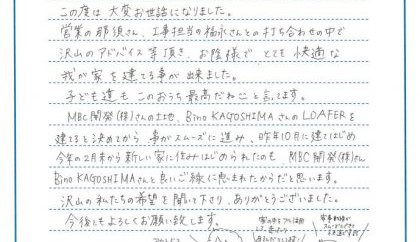 この度は大変お世話になりました。
営業の那須さん、工事担当の福永さんとの打ち合わせの中で
沢山のアドバイス等頂き、お陰様でとても快適な
我が家を建てる事が出来ました。
子ども達も このおうち最高だねこと言てます。
MBC開発(株)さんの土地、Bino KAGOSHIMAさんのLOAFERを
建てると決めてから 事がスムーズに進み、昨年10月に建てはじめ
今年の2月末から新しい家に住みはじめられたのも MBC開発(株)さん
Bino KAGOSHIMAさんと良いご縁に恵まれたからだと思います。
沢山の私たちの希望を聞いて下さり、ありがとうございました。
今後ともよろしくお願い致します。